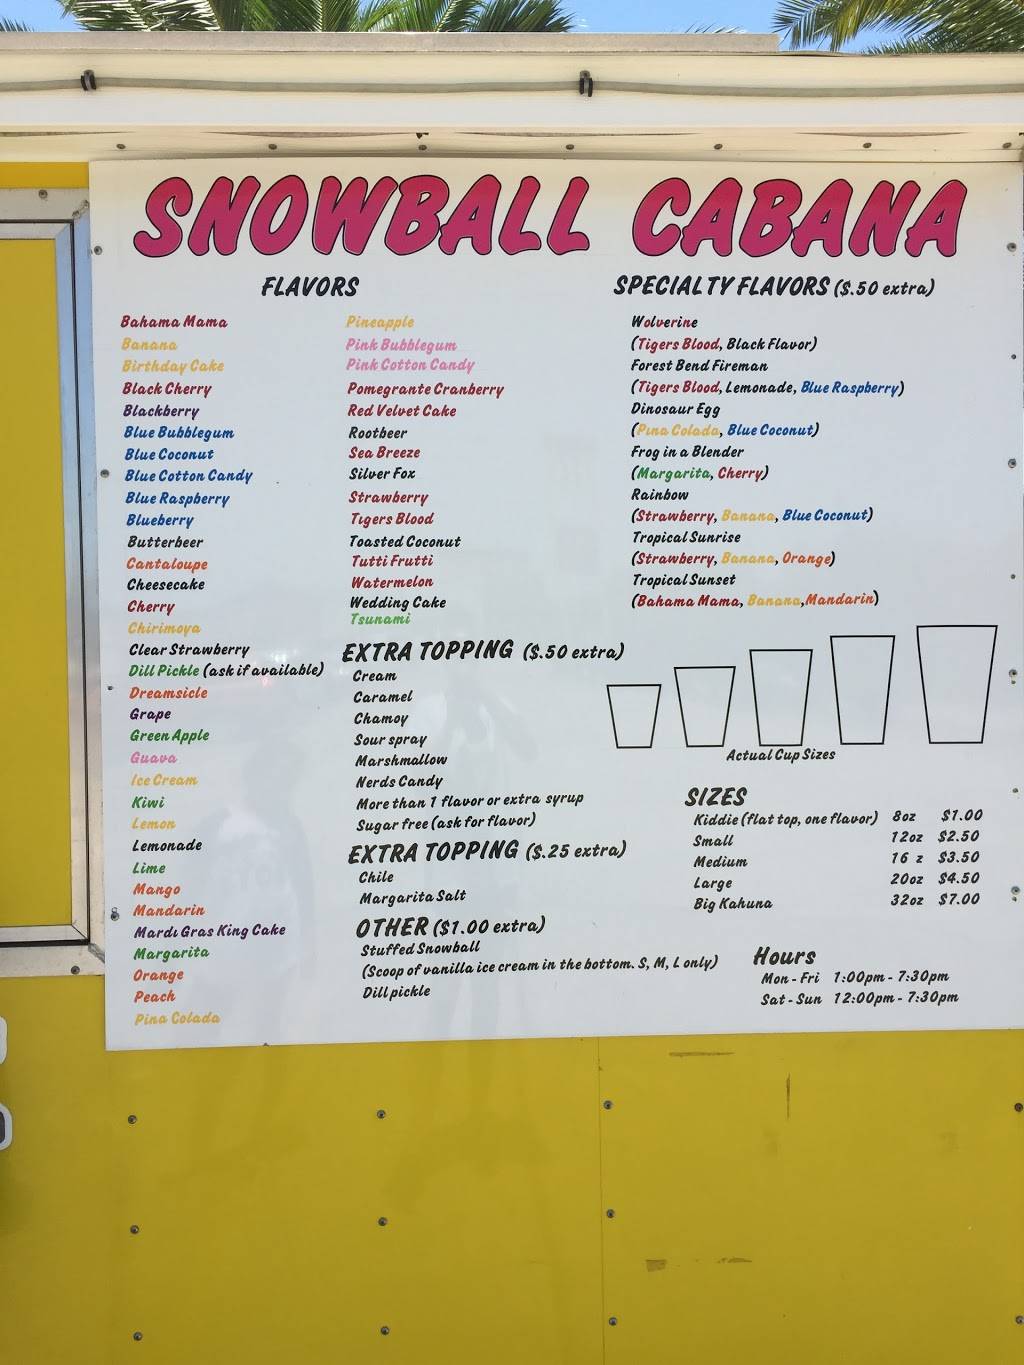 SNOWBALL CABANA
FLAVORS
Bahama Mama
Banana
Birthday Cake
Black Cherry
Blackberry
Blue Bubblegum
Blue Coconut
Blue Cotton Candy
Blue Raspberry
Blueberry
Butterbeer
Cantaloupe
Cheesecake
Cherry
Chirimoya
Clear Strawberry
Dill Pickle (ask if available)
Dreamsicle
Grape
Green Apple
Guava
Ice Cream
Kiwi
Lemon
Lemonade
Lime
Mango
Mandarin
Mardi Gras King Cake
Margarita
Orange
Peach
Pina Colada
Pineapple
Pink Bubblegum
Pink Cotton Candy
Pomegrante Cranberry
Red Velvet Cake
Rootbeer
Sea Breeze
Silver Fox
Strawberry
Tigers Blood
Toasted Coconut
Tutti Frutti
Watermelon
Wedding Cake
Tsunami
EXTRA TOPPING ($.50 extra)
Cream
Caramel
Chamoy
Sour spray
Marshmallow
Nerds Candy
More than 1 flavor or extra syrup
Sugar free (ask for flavor)
EXTRA TOPPING ($.25 extra)
Chile
Margarita Salt
OTHER ($1.00 extra)
Stuffed Snowball
(Scoop of vanilla ice cream in the bottom. S, M, L only)
Dill pickle
SPECIALTY FLAVORS ($.50 extra)
Wolverine
(Tigers Blood, Black Flavor)
Forest Bend Fireman
(Tigers Blood, Lemonade, Blue Raspberry)
Dinosaur Egg
(Pina Colada, Blue Coconut)
Frog in a Blender
(Margarita, Cherry)
Rainbow
(Strawberry, Banana, Blue Coconut)
Tropical Sunrise
(Strawberry, Banana, Orange)
Tropical Sunset
(Bahama Mama, Banana, Mandarin)
Actual Cup Sizes
SIZES
Kiddie (flat top, one flavor) 8oz $1.00
Small 12oz $2.50
Medium 16 z $3.50
Large 20oz $4.50
Big Kahuna 32oz $7.00
Hours
Mon - Fri 1:00pm - 7:30pm
Sat - Sun 12:00pm - 7:30pm